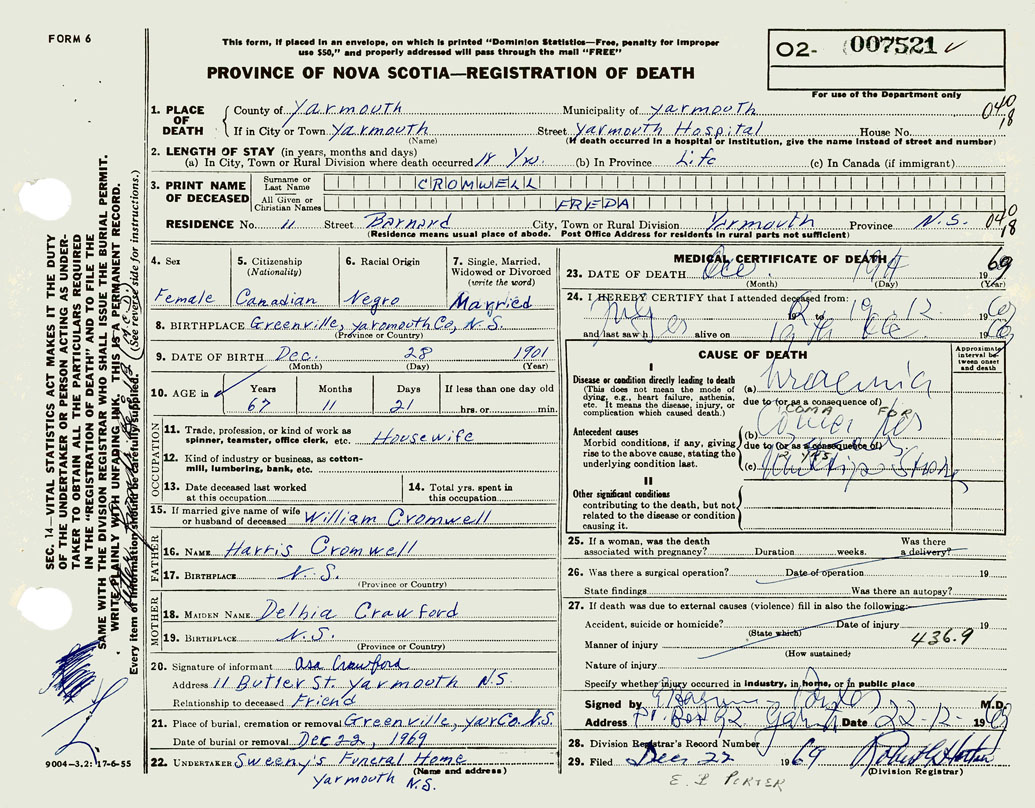 FORM 6
This form, if placed in an envelope, on which is printed "Dominion Statistics—Free, penalty for improper
use $50," and properly addressed will pass through the mail "FREE"
PROVINCE OF NOVA SCOTIA—REGISTRATION OF DEATH
02- 007521
For use of the Department only
SEC. 14—VITAL STATISTICS ACT MAKES IT THE DUTY
OF THE UNDERTAKER OR PERSON ACTING AS UNDER-
TAKER TO OBTAIN ALL THE PARTICULARS REQUIRED
IN THE "REGISTRATION OF DEATH" AND TO FILE THE
SAME WITH THE DIVISION REGISTRAR WHO SHALL ISSUE THE BURIAL PERMIT.
WRITE PLAINLY WITH UNFADING INK. THIS IS A PERMANENT RECORD.
Every item of information should be carefully supplied. (See reverse side for instructions.)
1. PLACE OF DEATH County of Yarmouth Municipality of Yarmouth 040
18
If in City or Town Yarmouth Street Yarmouth Hospital House No.
(Name) (If death occurred in a hospital or institution, give the name instead of street and number)
2. LENGTH OF STAY (in years, months and days)
(a) In City, Town or Rural Division where death occurred 18 Yrs. (b) In Province Life (c) In Canada (if immigrant)
3. PRINT NAME OF DECEASED Surname or Last Name CROMWELL
All Given or Christian Names FREDA
RESIDENCE No. 11 Street Barnard City, Town or Rural Division Yarmouth Province N.S. 040
18
(Residence means usual place of abode. Post Office Address for residents in rural parts not sufficient)
4. Sex 5. Citizenship (Nationality) 6. Racial Origin 7. Single, Married, Widowed or Divorced (write the word)
Female Canadian Negro Married
8. BIRTHPLACE Greenville, Yarmouth Co, N.S.
(Province or Country)
9. DATE OF BIRTH Dec. 28 1901
(Month) (Day) (Year)
10. AGE in Years Months Days If less than one day old
67 11 21 hrs. or min.
OCCUPATION
11. Trade, profession, or kind of work as
spinner, teamster, office clerk, etc. Housewife
12. Kind of industry or business, as cotton-
mill, lumbering, bank, etc.
13. Date deceased last worked
at this occupation
14. Total yrs. spent in
this occupation
15. If married give name of wife
or husband of deceased William Cromwell
FATHER
16. NAME Harris Cromwell
17. BIRTHPLACE N.S.
(Province or Country)
MOTHER
18. MAIDEN NAME Delhia Crawford
19. BIRTHPLACE N.S.
(Province or Country)
20. Signature of informant Asa Crawford
Address 11 Butler St. Yarmouth N.S.
Relationship to deceased Friend
21. Place of burial, cremation or removal Greenville, Yar Co. N.S.
Date of burial or removal Dec 22, 1969
22. UNDERTAKER Sweeny's Funeral Home
(Name and address)
Yarmouth N.S.
9004-3.2: 17-6-55
MEDICAL CERTIFICATE OF DEATH
23. DATE OF DEATH Dec 19th 1969
(Month) (Day) (Year)
24. I HEREBY CERTIFY that I attended deceased from:
to 19 12
and last saw h alive on 19th Dec
CAUSE OF DEATH
Approximate interval between onset and death
I
Disease or condition directly leading to death
(This does not mean the mode of
dying, e.g., heart failure, asthenia,
etc. It means the disease, injury, or
complication which caused death.)
(a) Uraemia
due to (or as a consequence of)
COMA FOR
Antecedent causes
Morbid conditions, if any, giving
rise to the above cause, stating the
underlying condition last.
(b)
due to (or as a consequence of)
(c) Multiple Strokes
II
Other significant conditions
contributing to the death, but not
related to the disease or condition
causing it.
25. If a woman, was the death
associated with pregnancy? Duration weeks. Was there a delivery?
26. Was there a surgical operation? Date of operation 19
State findings Was there an autopsy?
27. If death was due to external causes (violence) fill in also the following:
Accident, suicide or homicide? Date of injury 19
(State which)
Manner of injury 436.9
(How sustained)
Nature of injury
Specify whether injury occurred in industry, in home, or in public place
Signed by M.D.
Address Box 92 Yarmouth Date 22-12-1969
28. Division Registrar's Record Number
29. Filed Dec 22 1969
(Division Registrar)
E. L PORTER